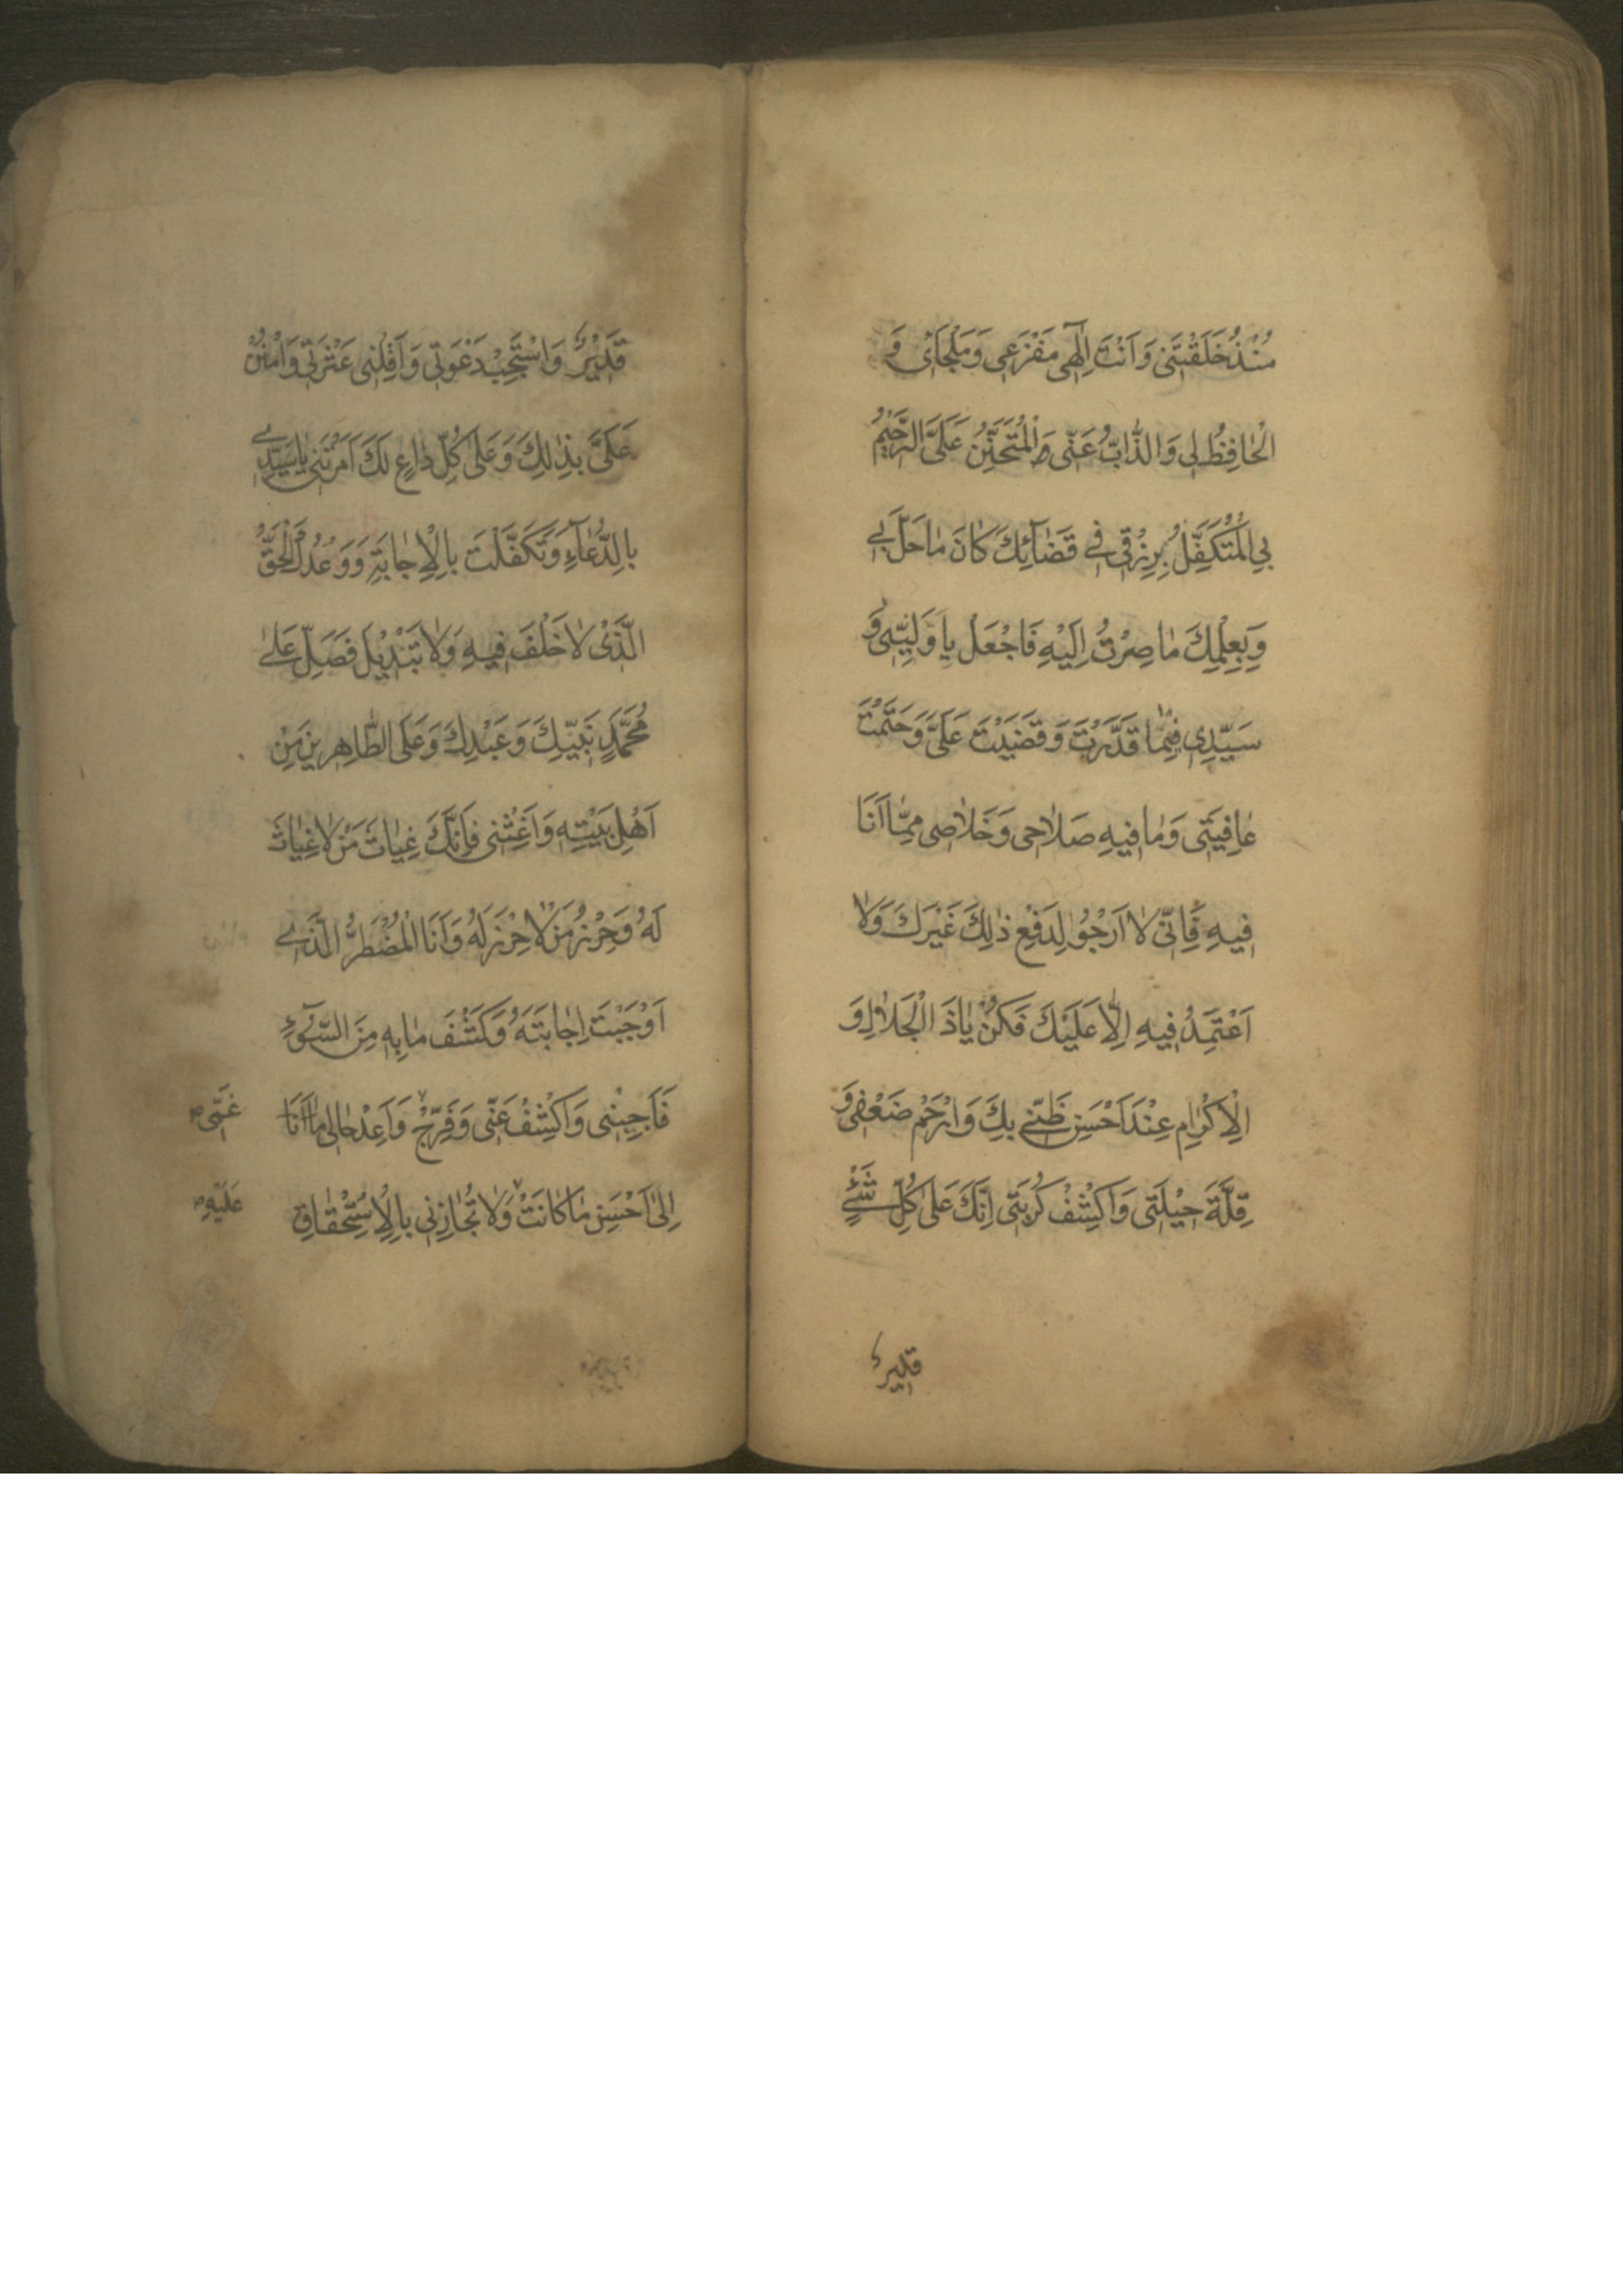 مُنْذُ خَلَقْتَنِی وَاَنْتَ اِلٰهی مَفْزَعی وَمَلْجَائ وَ
الْحٰافِظُ لی وَالذّٰابُّ عَنّی وَالْمُتَحَنِّنُ عَلَیَّ الرَّحٖیمُ
بِی الْمُتَکَفِّلُ بِرِزْقی فی قَضٰآئِكَ کٰانَ مٰا حَلَّ بی
وَبِعِلْمِكَ مٰا صِرْتُ اِلَیْهِ فَاجْعَلْ یٰا وَلِیّٖی وَ
سَیِّدِی فیمٰا قَدَّرْتَ وَقَضَیْتَ عَلَیَّ وَحَتَمْتَ
عٰافِیَتی وَمٰا فیهِ صَلاٰحی وَخَلاٰصی مِمّٰا اَنَا
فیهِ فَاِنّی لاٰ اَرْجُوا لِدَفْعِ ذٰلِكَ غَیْرَكَ وَلاٰ
اَعْتَمِدُ فیهِ اِلّاٰ عَلَیْكَ فَکُنْ یٰا ذَا الْجَلاٰلِ وَ
الْاِکْرٰامِ عِنْدَ اَحْسَنِ ظَنّی بِكَ وَارْحَمْ ضَعْفی وَ
قِلَّةَ حیْلَتی وَاکْشِفْ کُرْبَتی اِنَّكَ عَلیٰ کُلِّ شَیْءٍ
قدیر
قَدیْرٌ وَاسْتَجِبْ دَعْوَتی وَاَقِلْنی عَثْرَتی وَامْنُنْ
عَلَیَّ بِذٰلِكَ وَعَلیٰ کُلِّ دٰاعٍ لَكَ اَمَرْتَنی یٰا سَیِّدی
بِالدُّعٰآءِ وَتَکَفَّلْتَ بِالْاِجٰابَةِ وَوَعْدُكَ الْحَقُّ
الَّذیْ لاٰ خَلْفَ فیهِ وَلاٰ تَبْدیْلَ فَصَلِّ عَلیٰ
مُحَمَّدٍ نَبِیِّكَ وَعَبْدِكَ وَعَلَی الطّٰاهِرینَ مِنْ
اَهْلِ بَیْتِهِ وَاَغِثْنی فَاِنَّكَ غِیٰاثُ مَنْ لاٰ غِیٰاثَ
لَهُ وَحِرْزُ مَنْ لاٰ حِرْزَ لَهُ وَاَنَا الْمُضْطَرُّ الَّذی
اَوْجَبْتَ اِجٰابَتَهُ وَکَشْفَ مٰا بِهِ مِنَ السُّوٓءِ
فَاَجِبْنی وَاکْشِفْ عَنّی وَفَرِّجْ وَاَعِدْ حٰالی مٰا اَنَا
غَمّی
اِلیٰ اَحْسَنِ مٰا کٰانَتْ وَلاٰ تُجٰازِنی بِالْاِسْتِحْقٰاقِ
عَلَیْهِ